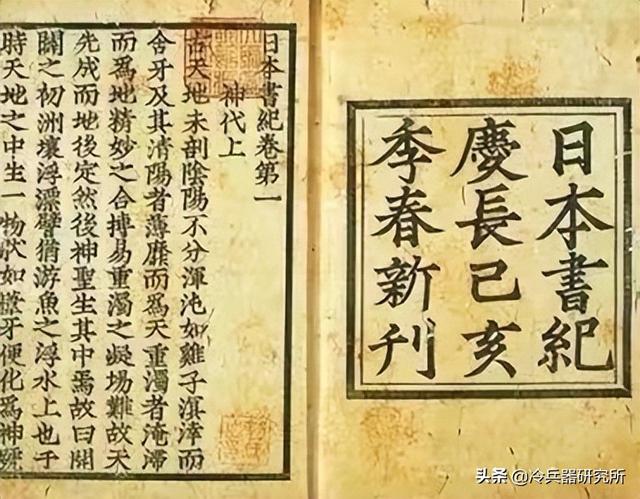 日本書紀
慶長己亥
季春新刊
日本書紀卷第一
神代上
古天地未剖陰陽不分渾沌如雞子溟涬而
含牙及其清陽者薄靡而爲天重濁者淹滯
而爲地精妙之合搏易重濁之凝場難故天
先成而地後定然後神聖生其中焉故曰開
闢之初洲壤浮漂譬猶游魚之浮水上也于
時天地之中生一物狀如葦牙便化爲神
头条 @冷兵器研究所